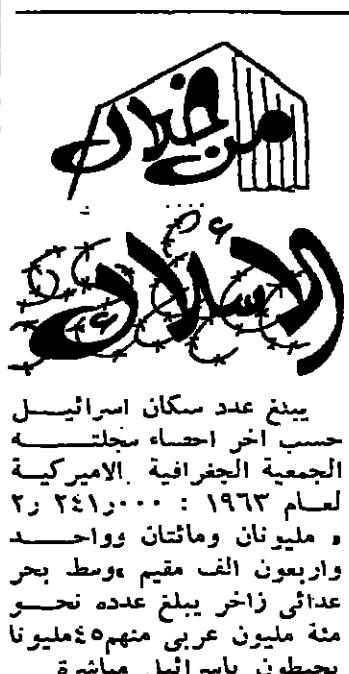 من خلال
الأسلاك
يبلغ عدد سكان اسرائيل
حسب اخر احصاء سجلته
الجمعية الجغرافية الاميركية
لعام ١٩٦٣ : ٢٤١٫٠٠٠ر٢
« مليونان ومائتان وواحد
واربعون الف مقيم »وسط بحر
عدائي زاخر يبلغ عدده نحو
مئة مليون عربي منهم٤٥مليونا
يحيطون باسرائيل مباشرة